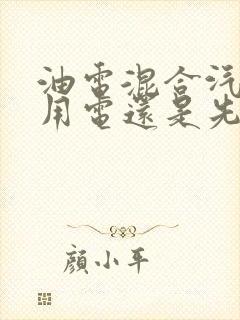 油電混合汽
用電還是先
顏小平